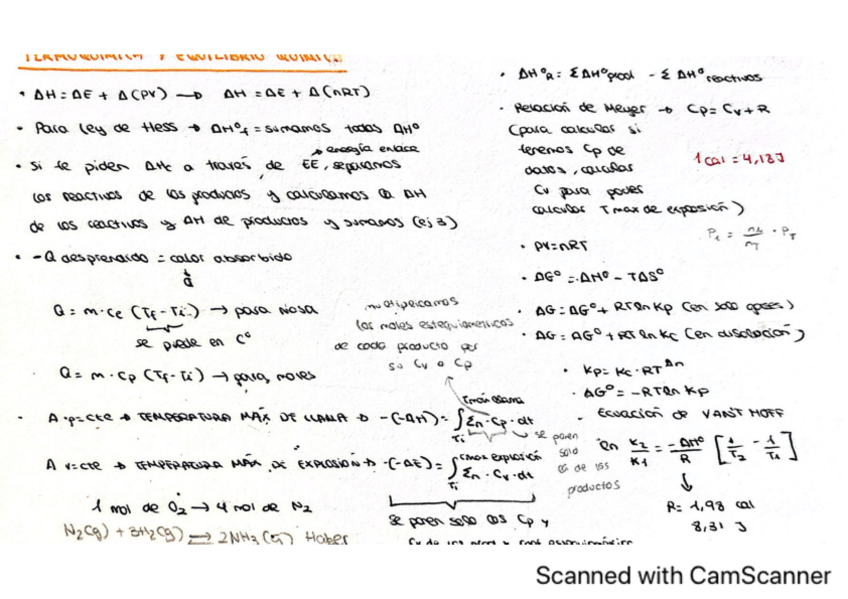 TERMOQUÍMICA Y EQUILIBRIO QUÍMICO
• ΔH = ΔE + Δ(PV) → ΔH = ΔE + Δ(nRT)
• Para Ley de Hess → ΔHºf = sumamos todas ΔHº
→ energía enlace
• Si te piden ΔHc a través de EE, separamos
los reactivos de los productos y calculamos la ΔH
de los reactivos y ΔH de productos y sumamos (ej 3)
• -Q desprendido = calor absorbido
Q = m·ce (Tf - Ti) → para masa
se puede en Cº
Q = m·Cp (Tf - Ti) → para moles
multiplicamos
los moles estequiometricos
de cada producto por
su Cv o Cp
• A p=cte → TEMPERATURA MÁX DE LLAMA → -(-ΔH) = ∫Ti Tmáx llama Σn·Cp·dt
→ se ponen
solo
los de los
productos
A v=cte → TEMPERATURA MÁX DE EXPLOSIÓN → -(-ΔE) = ∫Ti Tmax explosión Σn·Cv·dt
se ponen solo los Cp y
1 mol de O2 → 4 mol de N2
N2(g) + 3H2(g) ⇌ 2NH3(g) Haber
• ΔHºR = ΣΔHºprod - ΣΔHºreactivos
• Relación de Meyer → Cp = Cv + R
(para calcular si
tenemos Cp de
datos, calcular
Cv para poder
calcular Tmax de explosión)
1 cal = 4,18J
• PV = nRT
• ΔGº = ΔHº - TΔSº
• ΔG = ΔGº + RT ln Kp (en solo gases)
• ΔG = ΔGº + RT ln Kc (en disolución)
• Kp = Kc·RT^Δn
• ΔGº = -RT ln Kp
• Ecuación de VANT HOFF
ln K2/K1 = -ΔHº/R [1/T2 - 1/T1]
R = 1,98 cal
8,31 J
Scanned with CamScanner